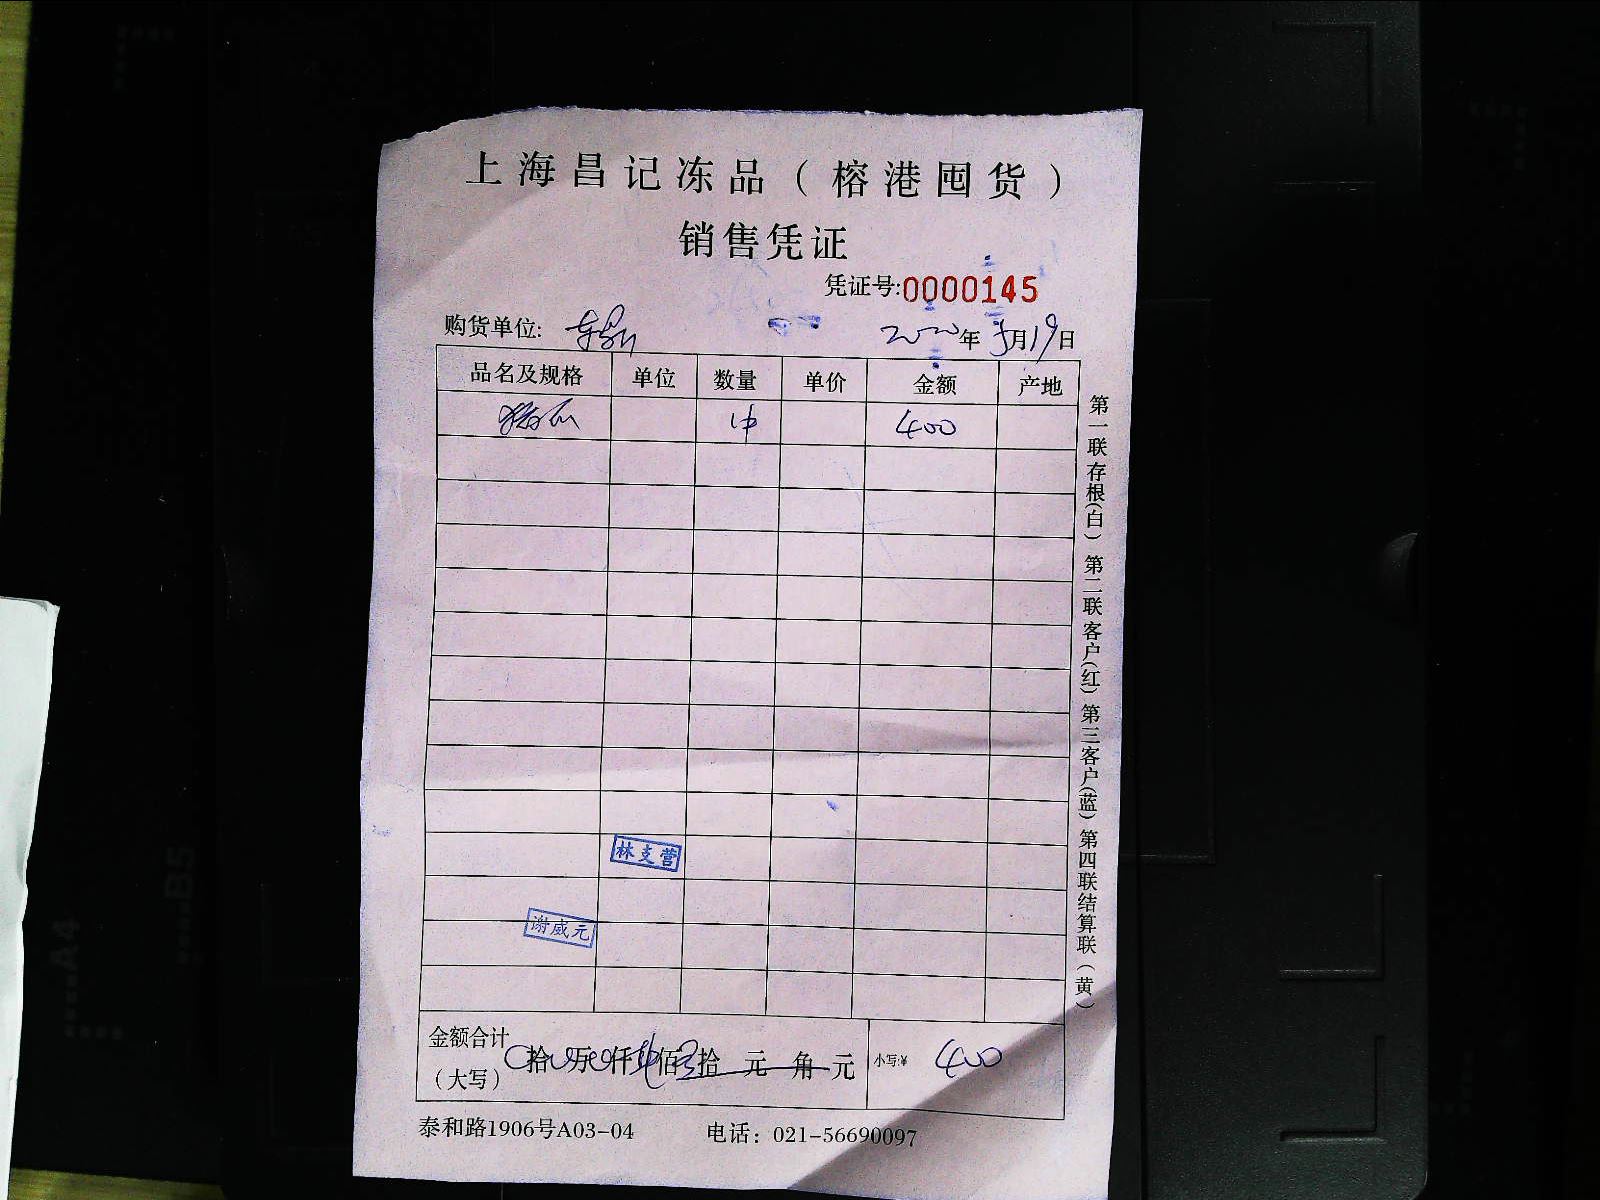 上海昌记冻品（榕港囤货）
销售凭证
凭证号:0000145
购货单位:
2020年5月19日
品名及规格 单位 数量 单价 金额 产地
400
第一联存根(白) 第二联客户(红) 第三客户(蓝) 第四联结算联(黄)
林支营
谢威元
金额合计
（大写） 拾 万 仟 佰 拾 元 角 元 小写:¥ 400
泰和路1906号A03-04 电话：021-56690097
B5
A4